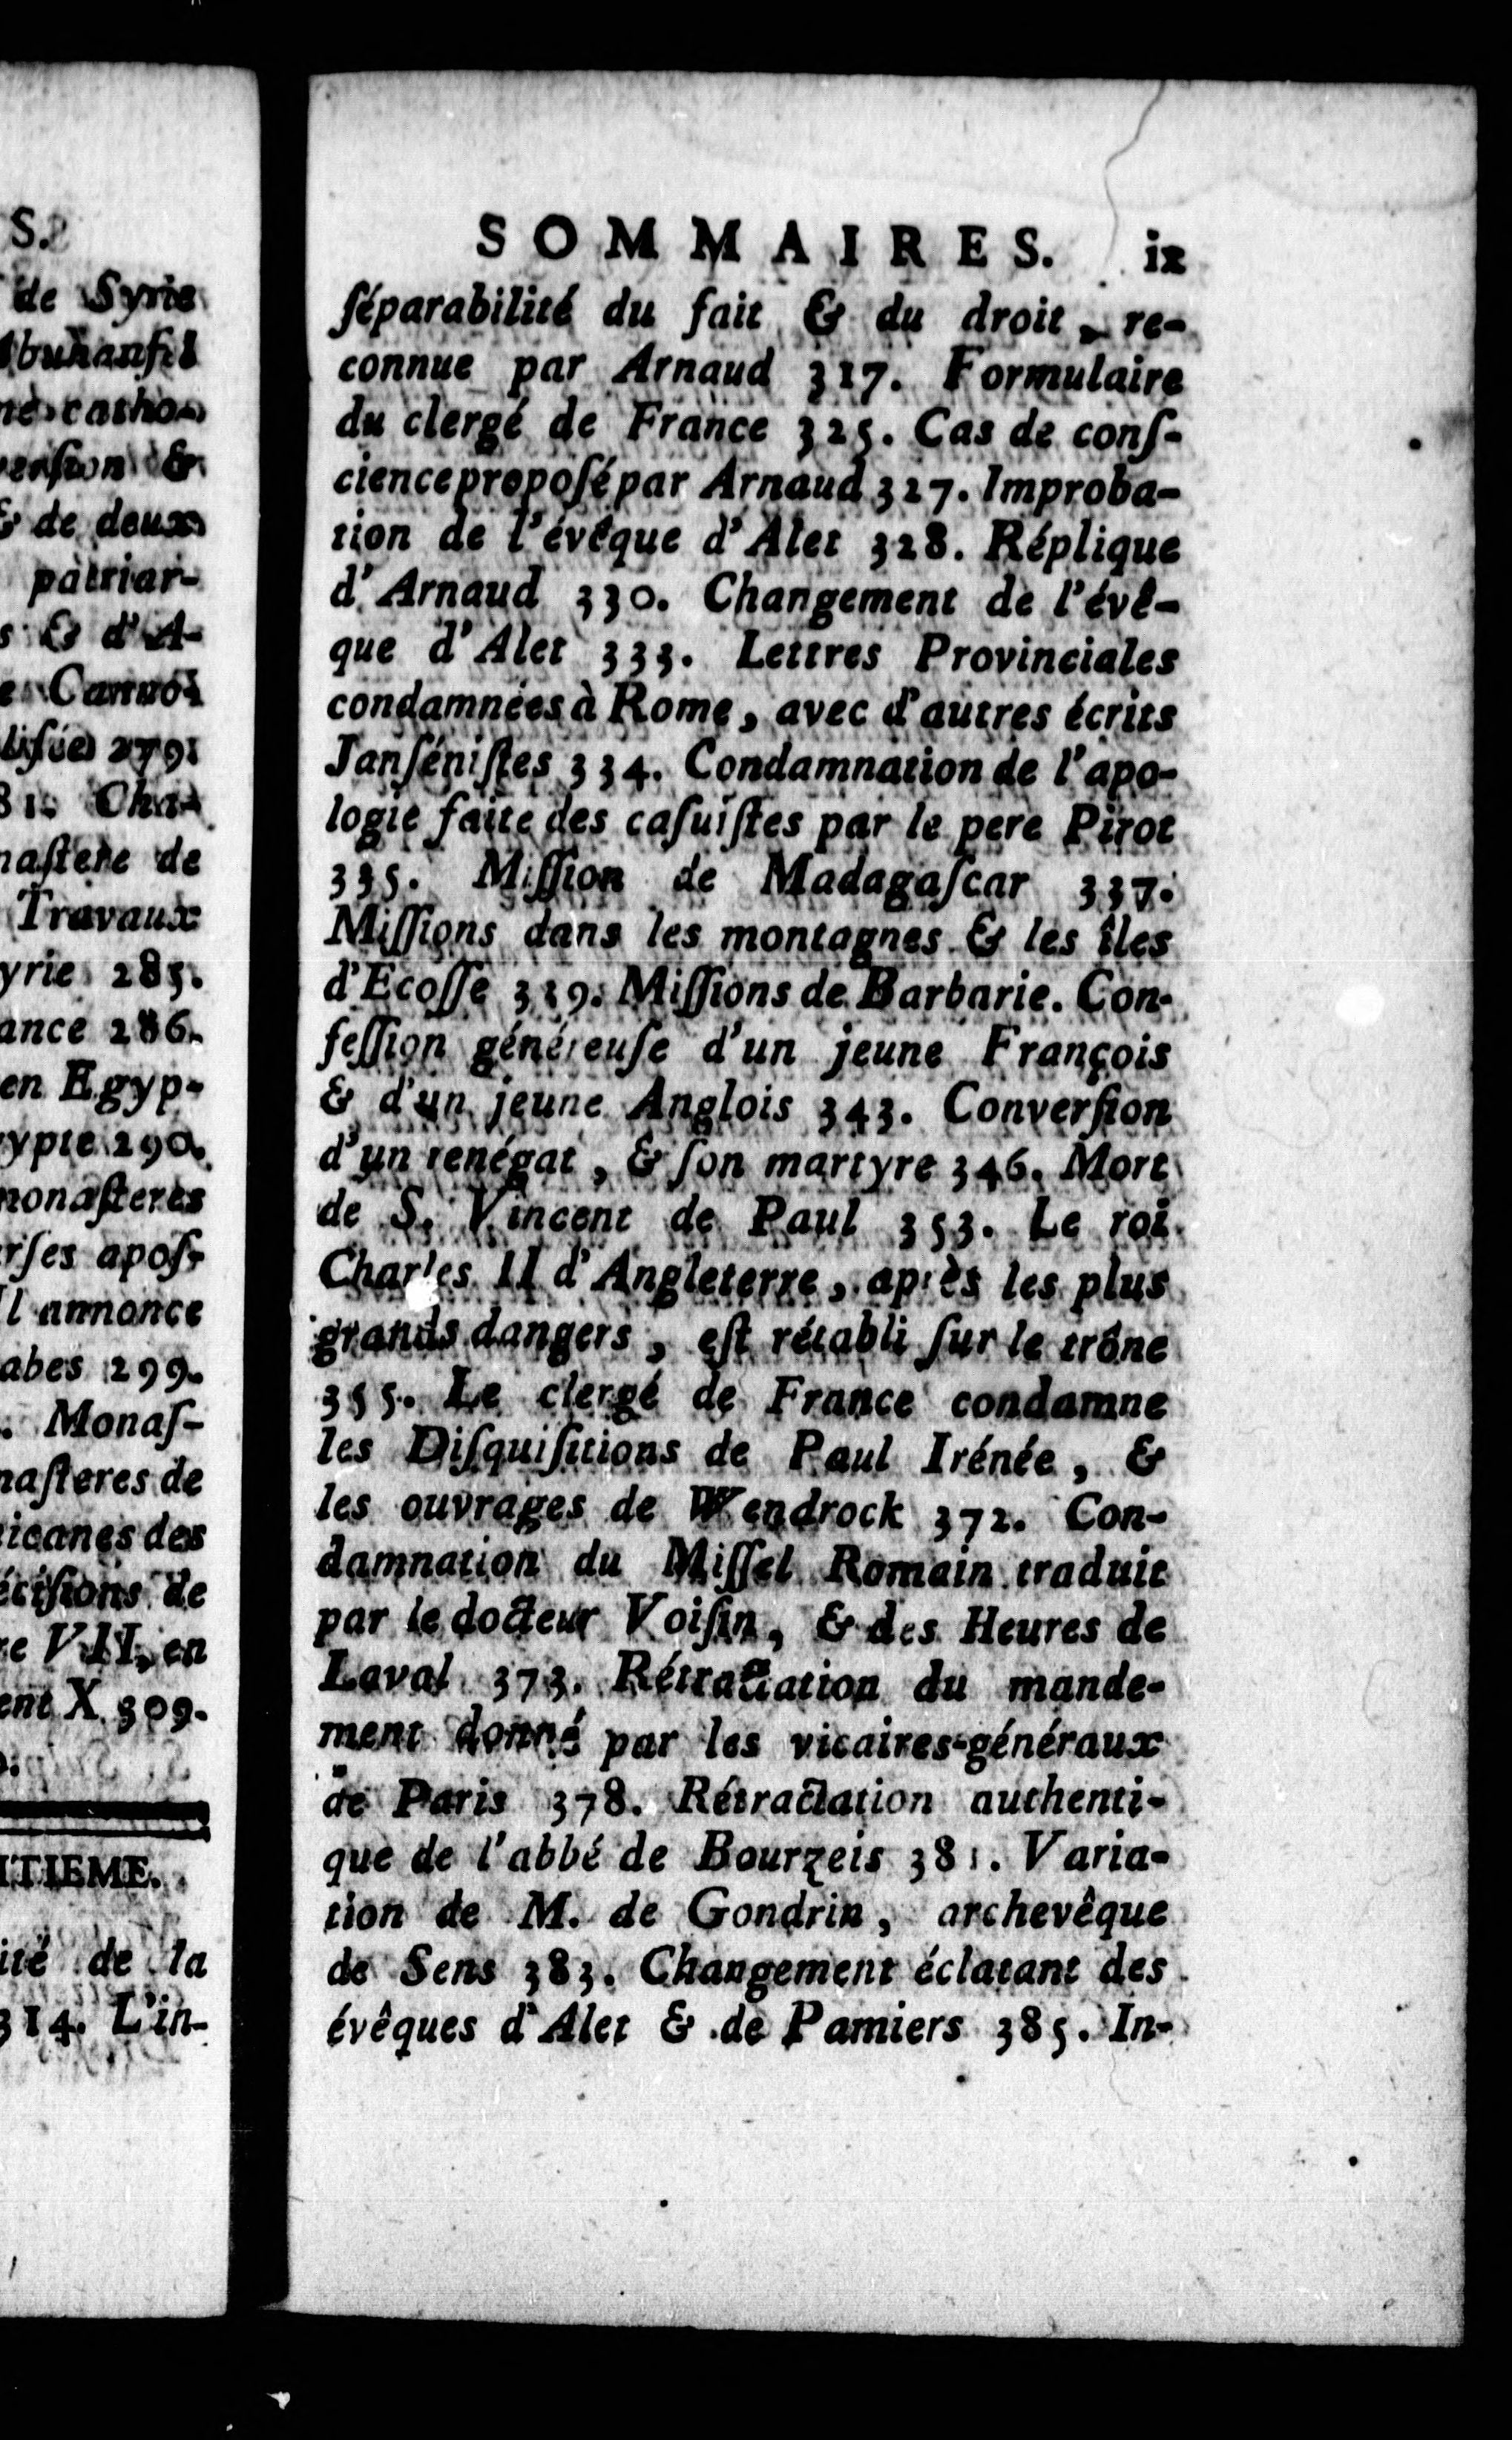 S.
de Syrie
patriar-
& de deux
s & d'A-
nastere de
Travaux
yrie 285.
ance 286.
en Egyp-
ypte 290.
monasteres
rſes apoſ-
Il annonce
abes 299.
. Monaſ-
naſteres de
icanes des
éciſions de
re VII, en
ent X 309.
ITIEME.
ité de la
314. L'in-
SOMMAIRES. ix
ſéparabilité du fait & du droit, re-
connue par Arnaud 317. Formulaire
du clergé de France 325. Cas de conſ-
cience propoſé par Arnaud 327. Improba-
tion de l'évêque d'Alet 328. Réplique
d'Arnaud 330. Changement de l'évê-
que d'Alet 333. Lettres Provinciales
condamnées à Rome, avec d'autres écrits
Janſéniſtes 334. Condamnation de l'apo-
logie faite des caſuiſtes par le pere Pirot
335. Miſſion de Madagaſcar 337.
Miſſions dans les montagnes & les îles
d'Ecoſſe 339. Miſſions de Barbarie. Con-
feſſion généreuſe d'un jeune François
& d'un jeune Anglois 343. Converſion
d'un renégat, & ſon martyre 346. Mort
de S. Vincent de Paul 353. Le roi
Charles II d'Angleterre, après les plus
grands dangers, eſt rétabli ſur le trône
355. Le clergé de France condamne
les Diſquiſitions de Paul Irénée, &
les ouvrages de Wendrock 372. Con-
damnation du Miſſel Romain traduit
par le docteur Voiſin, & des Heures de
Laval 373. Rétractation du mande-
ment donné par les vicaires-généraux
de Paris 378. Rétractation authenti-
que de l'abbé de Bourzeis 381. Varia-
tion de M. de Gondrin, archevêque
de Sens 383. Changement éclatant des
évêques d'Alet & de Pamiers 385. In-